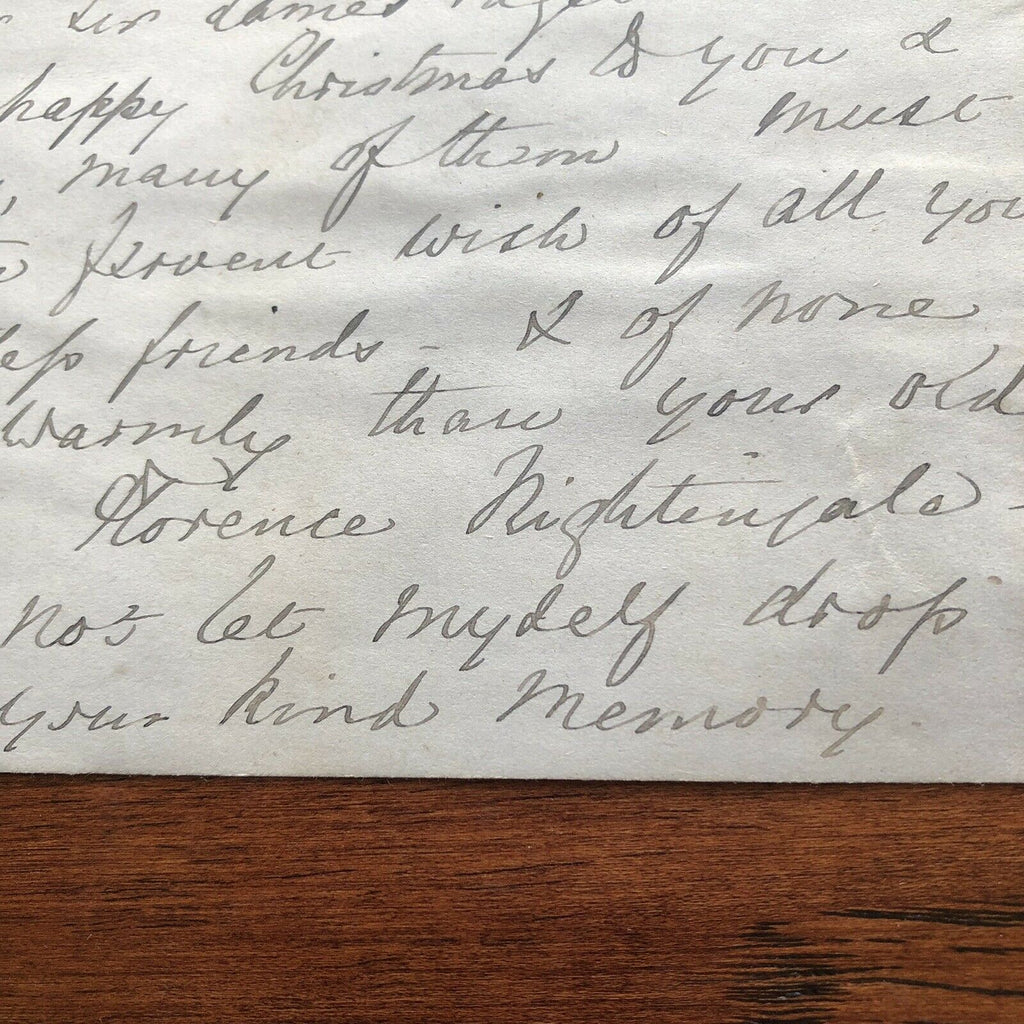 Sir James Paget
happy Christmas to you &
many of them must
fervent wish of all you
less friends - & of none
warmly than your old
Florence Nightingale -
not let myself drop
your kind memory.